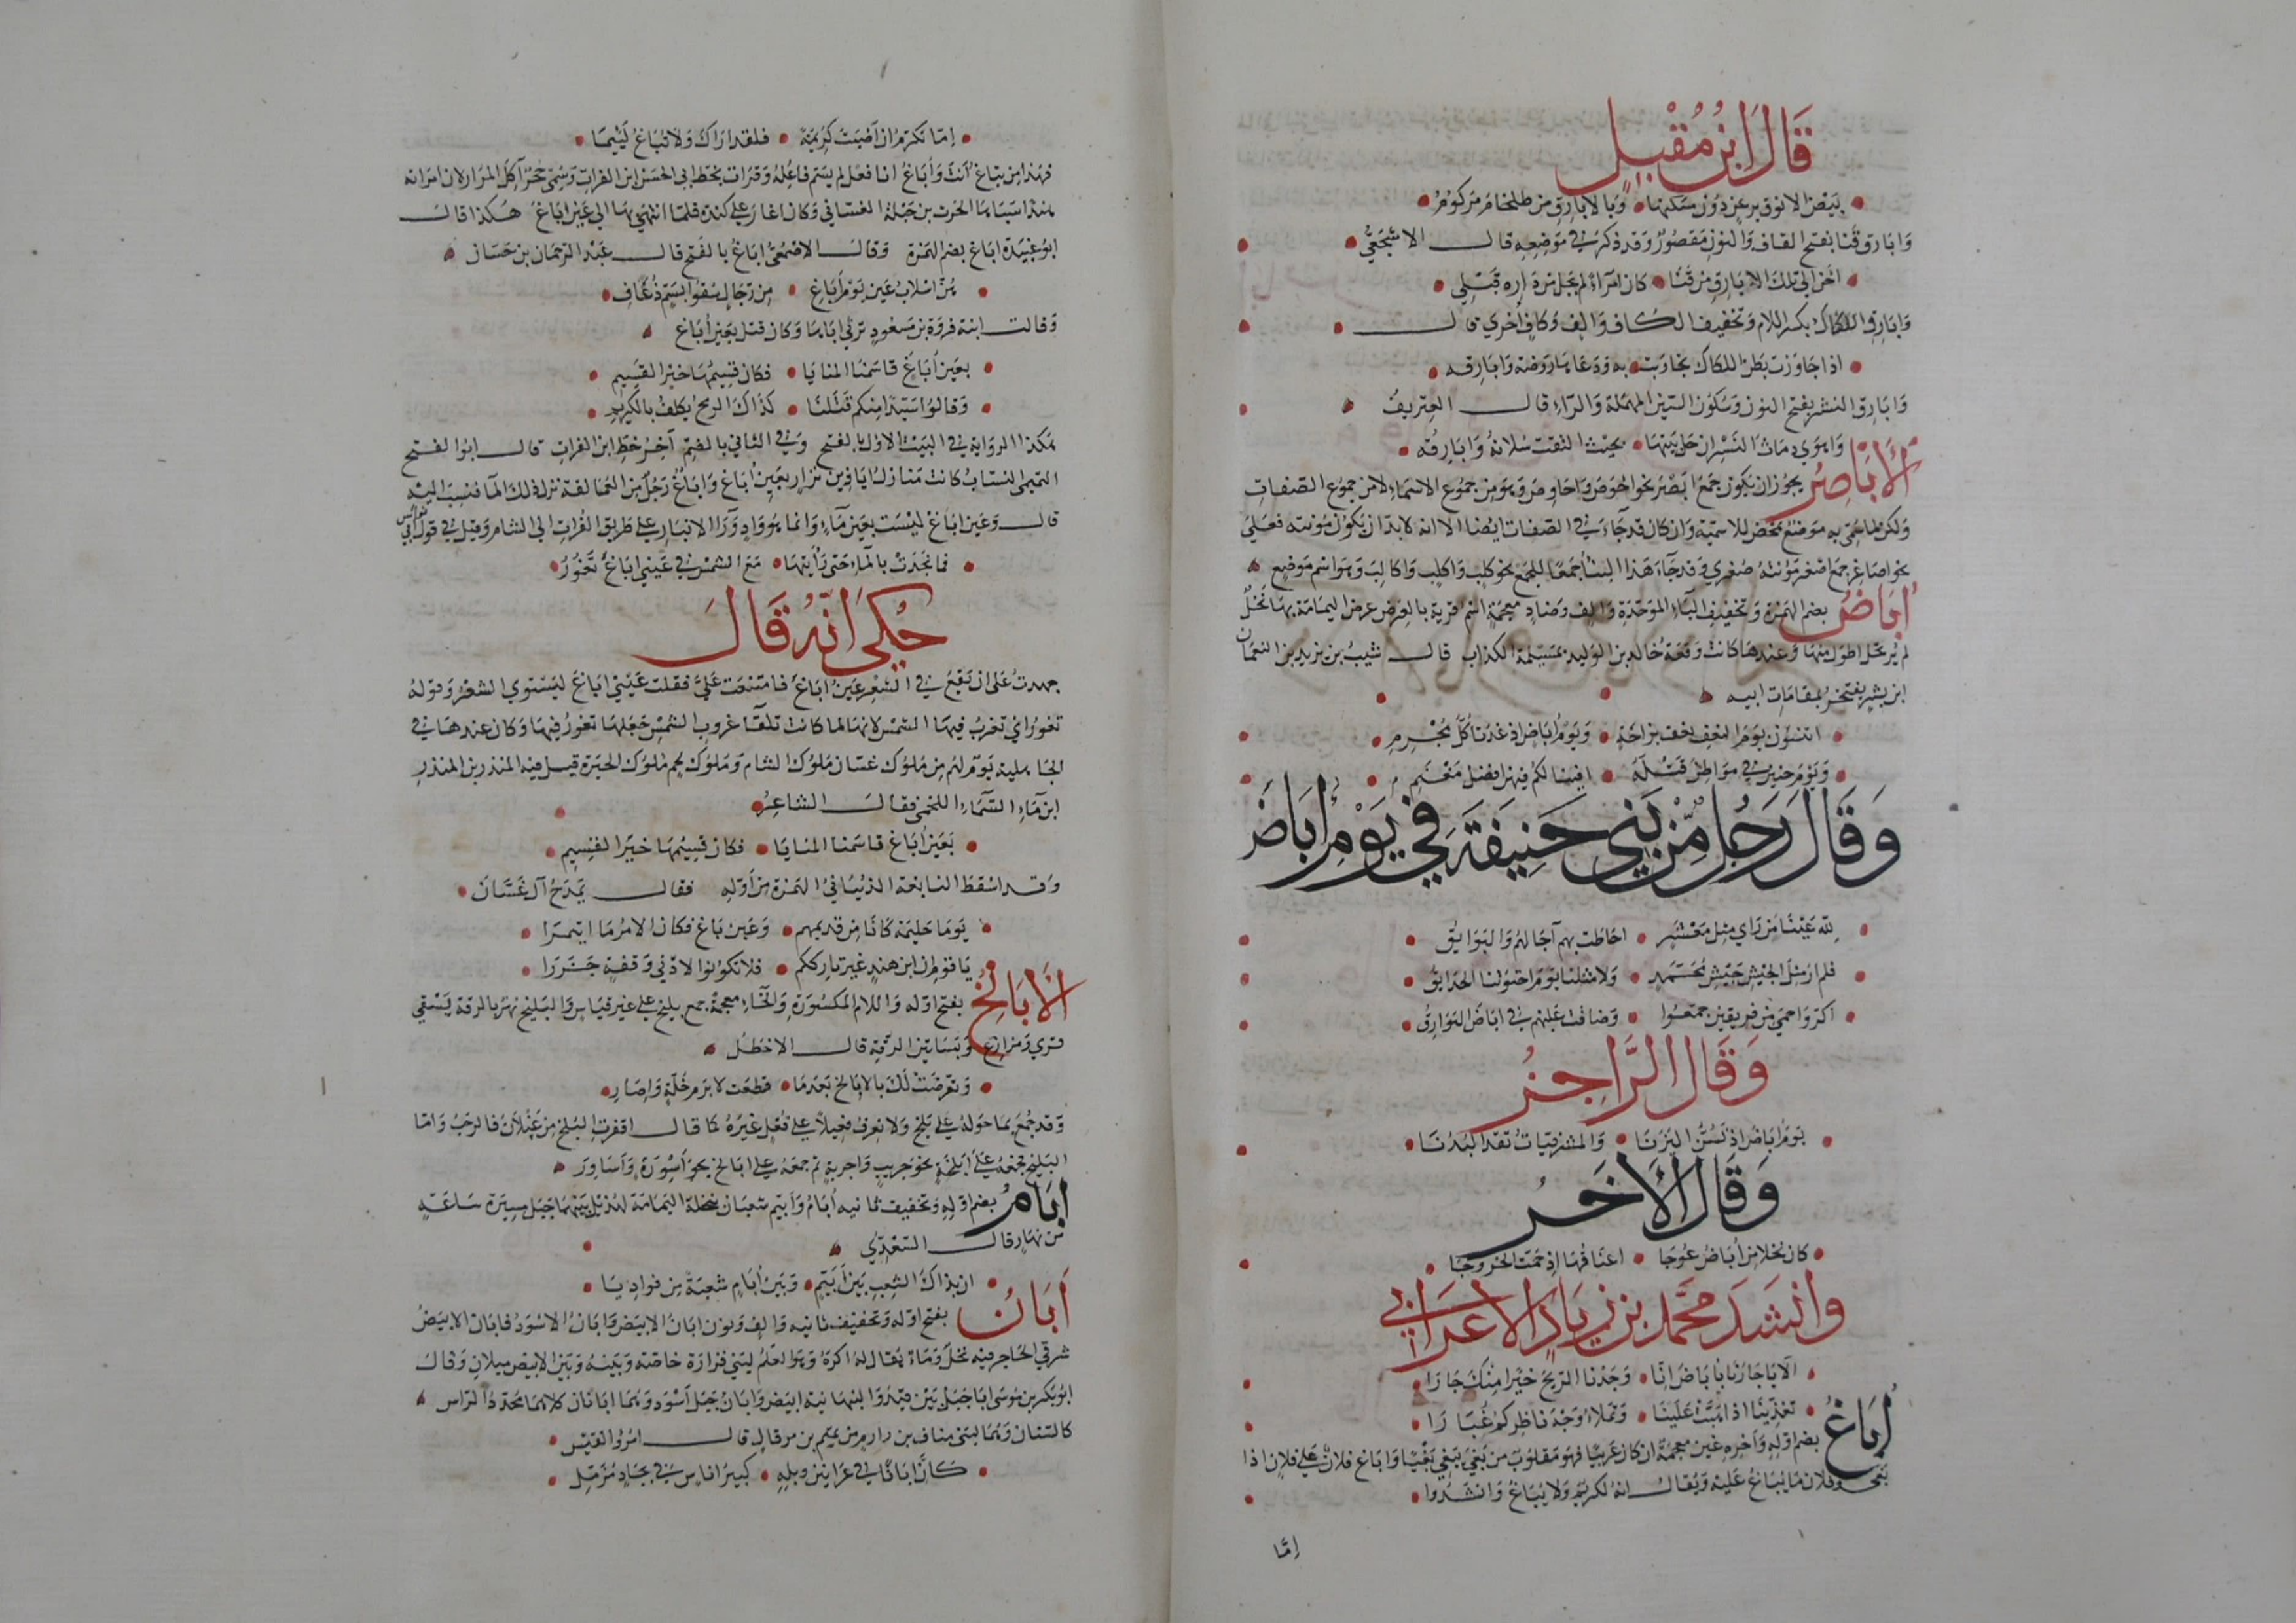 قَالَ ابْنُ مُقْبِلٍ
بيض الانوق برعن دون مسكنها • وبالابارق من طلخام مركوم
وابارق قنا بفتح القاف والنون مقصور وقد ذكر في موضعه قال الاشجعي
احن الى تلك الابارق من قنا • كان امرأ لم يجل من داره قبلي
وابارق اللكاك بكسر اللام وتخفيف الكاف والف وكاف اخرى قال
اذا جاوزت بطن اللكاك تجاوبت • به ودعاها روضه وابارقه
وابارق النسر بفتح النون وسكون السين المهملة والراء قال العتريف
واهوى دماث النسر ان حل بينها • بحيث التقت سلانه وابارقه
الأَبَاصِرُ يجوز ان يكون جمع ابصر نحو احوص واحاوص وهو من جموع الاسماء لا من جموع الصفات
ولكن لما سمي به موضع تمحض للاسمية وان كان قد جاء في الصفات ايضا الا انه لا بد ان يكون مؤنثه فعلى
نحو اصاغر جمع اصغر مؤنثه صغرى وقد جاء هذا البناء جمعا للجمع نحو كلب واكلب واكالب وهو اسم موضع
أُبَاضُ بضم الهمزة وتخفيف الباء الموحدة والف وضاد معجمة اسم قرية بالعرض عرض اليمامة بها نخل
لم ير نخل اطول منها وعندها كانت وقعة خالد بن الوليد بمسيلمة الكذاب قال شبيب بن يزيد بن النعمان
ابن بشير يفتخر بمقامات ابيه
اتنسون يوم النعف نعف بزاخة • ويوم اباض اذ عدت كل مجرم
ويوم حنين في مواطن قتلة • افينا لكم فيهن افضل مغنم
وَقَالَ رَجُلٌ مِّنْ بَنِي حَنِيفَةَ فِي يَوْمِ أُبَاضَ
لله عينا من راى مثل معشر • احاطت بهم آجالهم والبوائق
فلم ار مثل الجيش جيش محمد • ولا مثلنا يوم احتوتنا الحدائق
اكر واحمى من فريقين جمعوا • وضاقت عليهم في اباض البوارق
وَقَالَ الرَّاجِزُ
يوم اباض اذ نسن اليزنا • والمشرفيات تقد البدنا
وَقَالَ الأَخَرُ
كان نخلا من اباض عوجا • اعناقها اذ حمت الخروجا
وَانْشَدَ مُحَمَّد بْن زِيَادٍ الأَعْرَابِي
الا يا جارنا باباض انا • وجدنا الريح خيرا منك جارا
تغذينا اذا هبت علينا • وتملاء وجه ناظركم غبارا
أُبَاغُ بضم اوله وآخره غين معجمة ان كان عربيا فهو مقلوب من بغى يبغي بغيا واباغ فلان على فلان اذا
بغى وفلان ما يباغ عليه ويقال انه لكريم ولا يباغ وانشدوا
اما
اما تكرم ان اصبت كريمة • فلقد اراك ولا تباغ لئيما
فهذا من تباغ انت واباغ انا فعل لم يسم فاعله وقرات بخط ابي الحسن ابن الفرات وسمي حجر آكل المرار لان امراته
هندا سباها الحرث بن جبلة الغساني وكان اغار على كندة فلما انتهى بها الى عين اباغ هكذا قال
ابو عبيدة اباغ بضم الهمزة وقال الاصمعي اباغ بالفتح قال عبد الرحمان بن حسان
هن اسلاب عين يوم أباغ • من رجال سقوا بسم ذعاف
وقالت ابنة فروة بن مسعود ترثي اباها وكان قتل بعين أباغ
بعين أباغ قاسمنا المنايا • فكان قسيمها خير القسيم
وقالوا سيدا منكم قتلنا • كذاك الرمح يكلف بالكريم
هكذا الرواية في البيت الاول بالفتح وفي الثاني بالضم آخر خط ابن الفرات قال ابو الفتح
التميمي النساب كانت منازل اياد بن نزار بعين أباغ واباغ رجل من العمالقة نزل ذلك الماء فنسب اليه
قال وعين اباغ ليست بعين ماء وانما هو واد وراء الانبار على طريق الفرات الى الشام وقيل في قول ابي نواس
فما نجدت بالماء حتى رأيتها • مع الشمس في عيني اباغ تغور
حُكِيَ اَنَّهُ قَالَ
جهدت على ان تقع في الشعر عين اباغ فامتنعت علي فقلت عيني اباغ ليستوي الشعر وقوله
تغور اي تغرب فيها الشمس لانها لما كانت تلقاء غروب الشمس جعلها تغور فيها وكان عندها في
الجاهلية يوم لهم بين ملوك غسان ملوك الشام وملوك لخم ملوك الحيرة قتل فيه المنذر بن المنذر
ابن ماء السماء اللخمي فقال الشاعر
بعين أباغ قاسمنا المنايا • فكان قسيمها خير القسيم
وقد اسقط النابغة الذبياني الهمزة من اوله فقال يمدح آل غسان
يوما حليمة كانا من قديمهم • وعين باغ فكان الامر ما ايتمرا
يا قوم ان ابن هند غير تارككم • فلا تكونوا لادنى وقفة جزرا
الأَبَالِخُ بفتح اوله واللام المكسورة والخاء معجمة جمع بليخ على غير قياس والبليخ نهر بالرقة يسقي
قرى ومزارع وبساتين الرقة قال الاخطل
وتعرضت لك بالابالخ بعدما • قطعت لابرم خلة واصار
وقد جمع بما حوله على بلخ ولا نعرف فعيلا على فعل غيره كما قال اقفرت البلخ من عيلان فالرحب واما
البليخ فجمعه على ابلخة نحو جريب واجربة ثم جمعه على ابالخ نحو اسورة واساور
أُبَامُ بضم اوله وتخفيف ثانيه أبام وأبيم شعبان بنخلة اليمامة لهذيل بينهما جبل مسيرة ساعة
من نهار قال السعدي
ان بذاك الشعب بين أبيم • وبين أبام شعبة من فواديا
أَبَانُ بفتح اوله وتخفيف ثانيه والف ونون ابان الابيض وابان الاسود فابان الابيض
شرقي الحاجر فيه نخل وماء يقال له اكرة وهو العلم لبني فزارة خاصة وبينه وبين الابيض ميلان وقال
ابو بكر بن موسى ابا جبل بين فيد والنبهانية ابيض وابان جبل اسود وهما ابانان كلاهما محدد الراس
كالسنان وهما لبني مناف بن دارم من تميم بن مر قال امرؤ القيس
كان ابانا في عرانين وبله • كبير اناس في بجاد مزمل